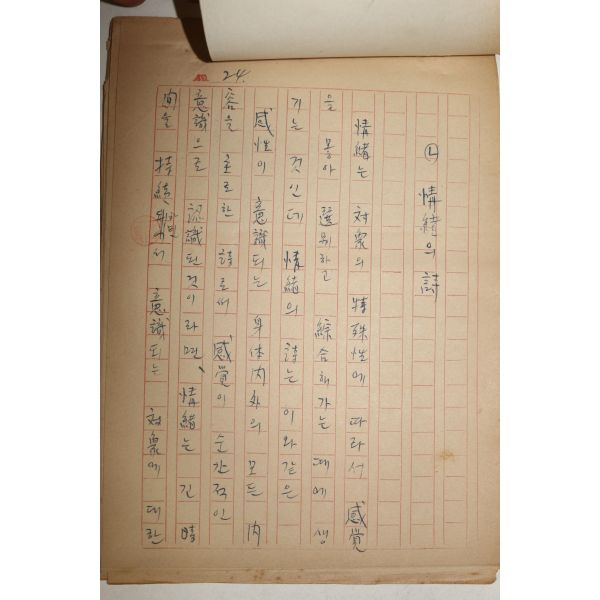 24.
㈁ 情緖의 詩
情緖는 対衆의 特殊性에 따라서 感覺
을 통아 選別하고 綜合해가는 때에 생
기는 것인데 情緖의 詩는 이와같은
感性이 意識되는 身体内外의 모든 内
容을 主로한 詩로써 感覺이 순간적인
意識으로 認識된 것이라면、情緖는 긴 時
間을 持続 되면서 意識되는 対衆에 대한